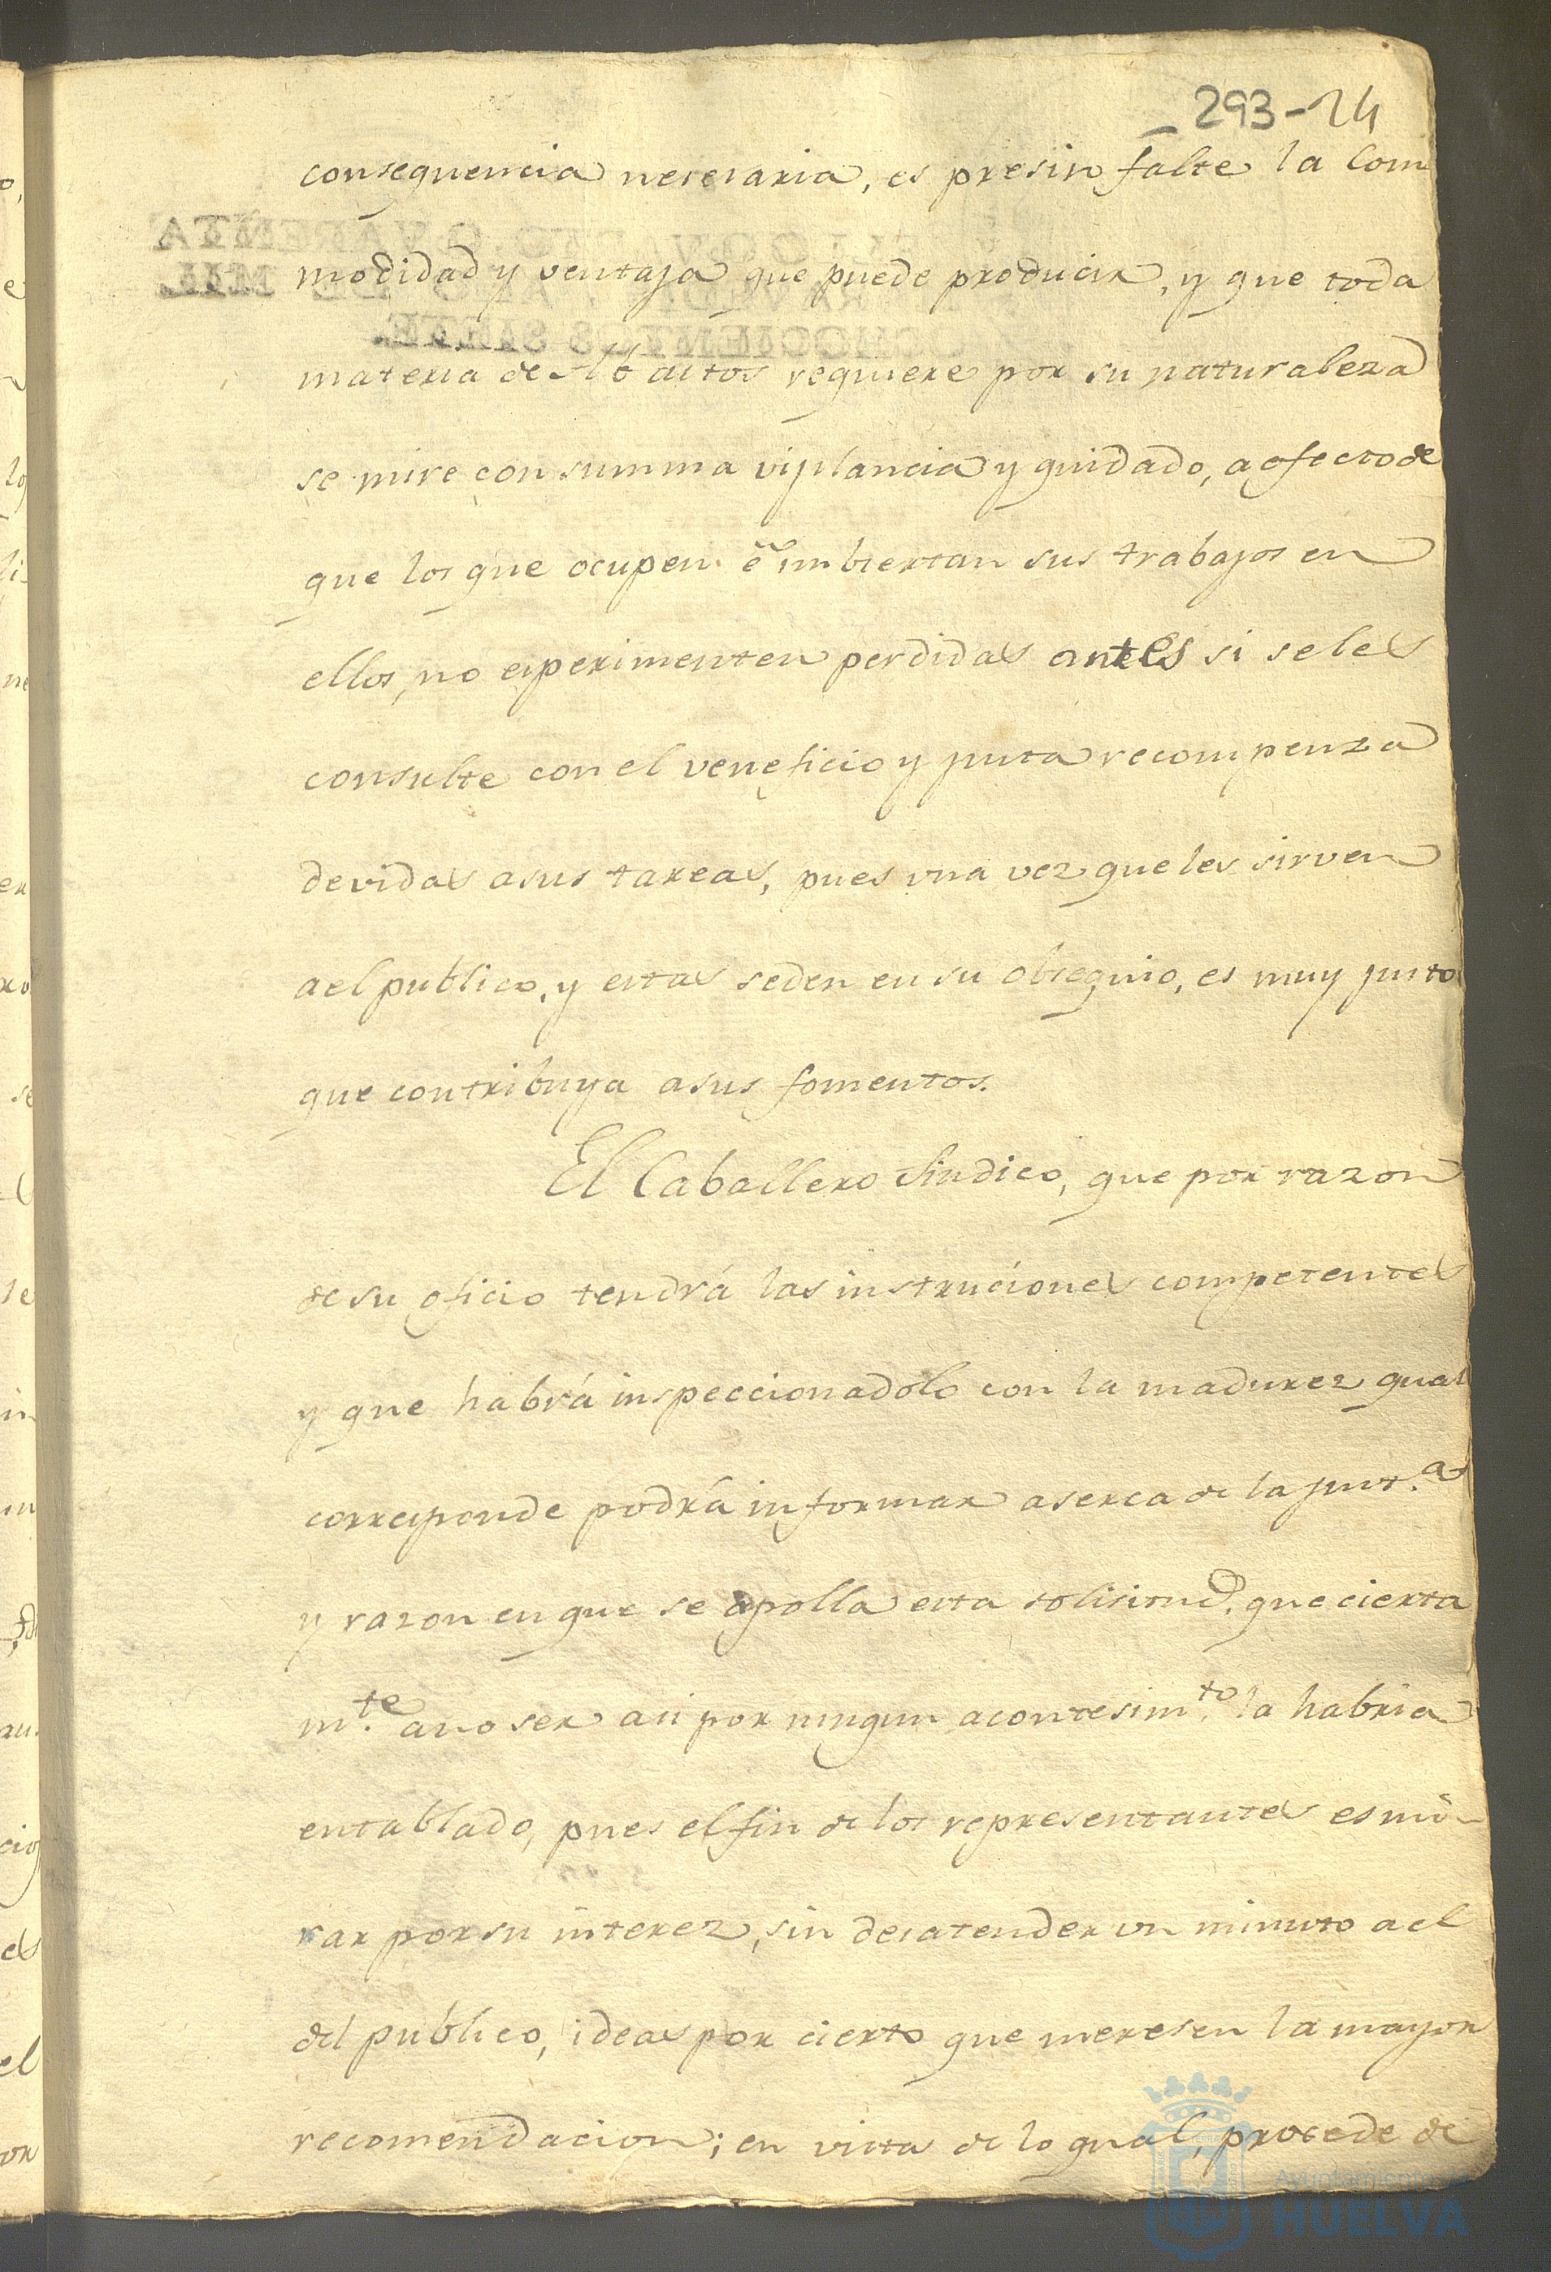 293-24
consequencia necesaria, es presin falte la Com
modidad y ventaja que puede producir, y que toda
materia de Abastos requiere por su naturaleza
se mire con summa vijilancia y quidado, a efecto de
que los que ocupen é imbiertan sus trabajos en
ellos, no experimenten perdidas antes si se les
consulte con el veneficio y justa recompenza
devidas a sus tareas, pues una vez que les sirven
a el publico, y estas seden en su obsequio, es muy justo
que contribuya a sus fomentos.
El Caballero Sindico, que por razon
de su oficio tendrá las instruciones competentes
y que habrá inspeccionadolo con la madurez qual
corresponde podrá informar aserca de la just.a
y razon en que se apolla esta solisitud, que cierta
m.te a no ser asi por ningun acontesim.to la habria
entablado, pues el fin de los representantes es mi-
rar por su interez, sin desatender un minuto a el
del publico, ideas por cierto que meresen la mayor
recomendacion; en vista de lo qual, procede de
QUARENTA
MIL
OCHOCIENTOS SIETE.
Ayuntamiento
HUELVA